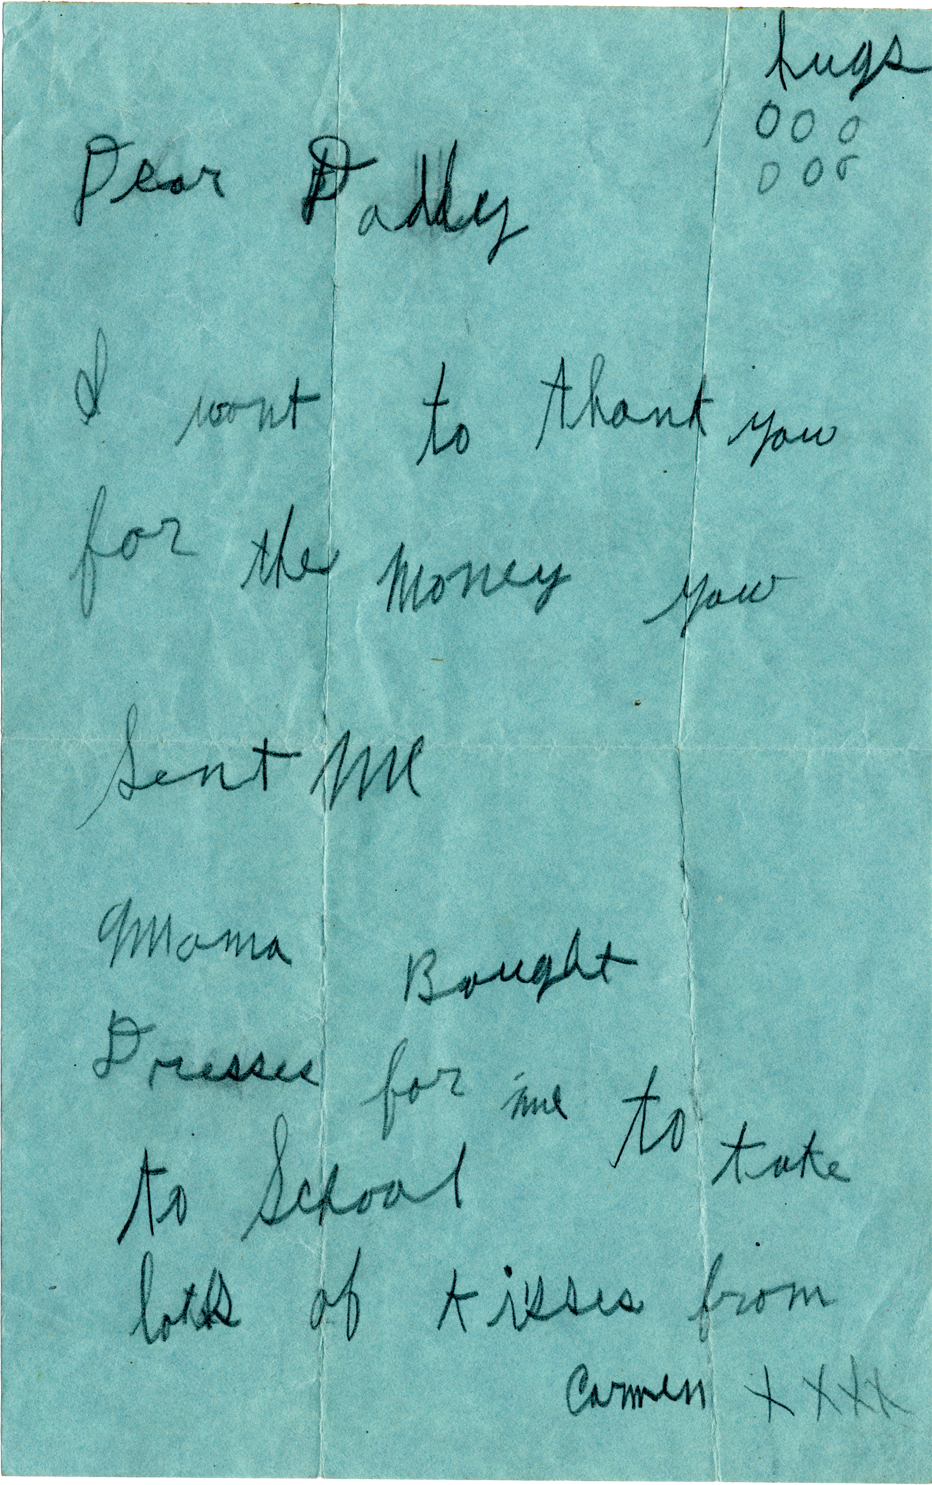 hugs
O O O
O O O
Dear Daddy
I want to thank you
for the Money you
Sent Me
Mama Bought
Dresses for me to take
to School
lots of kisses from
Carmen X X X X